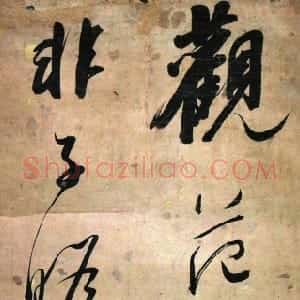 觀范
非子
Shufaziliao.COM